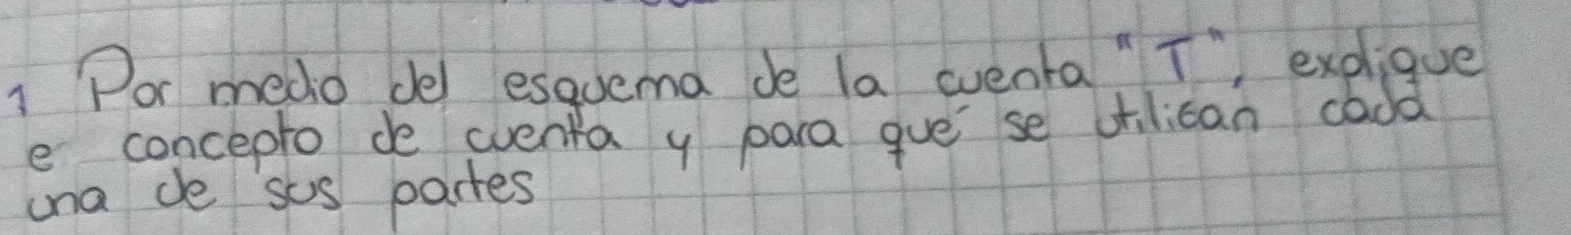 1 Por medio del esquema de la cuenta "T", explique
e concepto de cuenta y para qué se utilizan cada
una de sus partes